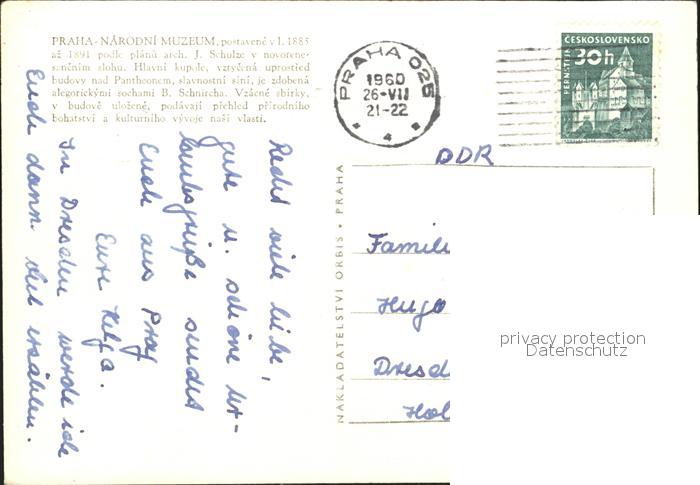 PRAHA - NÁRODNÍ MUZEUM, postavené v l. 1885
až 1891 podle plánů arch. J. Schulze v novorene-
sančním slohu. Hlavní kupole, vztyčená uprostřed
budovy nad Pantheonem, slavnostní síní, je zdobená
alegorickými sochami B. Schnircha. Vzácné sbírky,
v budově uložené, podávají přehled přírodního
bohatství a kulturního vývoje naší vlasti.
PRAHA 025
1960
26-VII
21-22
4
ČESKOSLOVENSKO
30 h
PERNŠTEJN
DDR
Recht viele liebe,
gute u. schöne Ur-
laubsgrüße sendet
Euch aus Prag
Eure Helga.
In Dresden werde ich
Euch dann viel erzählen.
NAKLADATELSTVÍ ORBIS · PRAHA
Famili
Hugo
Dresd
Hol
privacy protection
Datenschutz